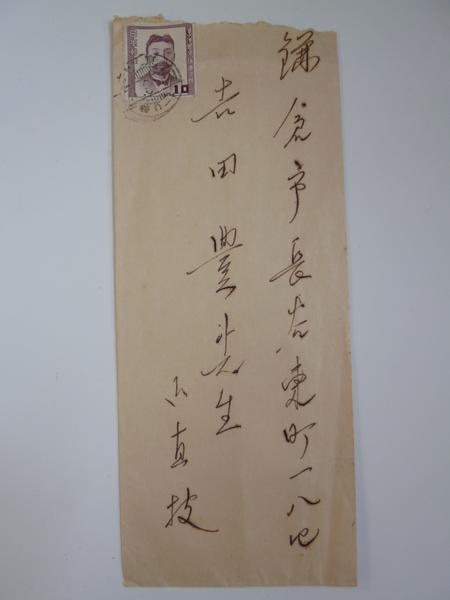 鎌倉市長谷東町一八
吉田 先生
御直披
10